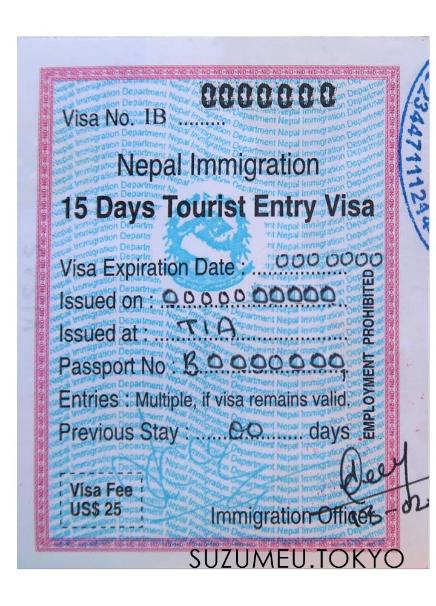 0000000
Visa No. IB .........
Nepal Immigration
15 Days Tourist Entry Visa
Visa Expiration Date : ....000 0000
Issued on : 00000 00000
Issued at : ....TIA....................
Passport No : B0000000,
Entries : Multiple, if visa remains valid.
Previous Stay : ......00........ days
EMPLOYMENT PROHIBITED
Visa Fee
US$ 25
Immigration Officer
SUZUMEU.TOKYO